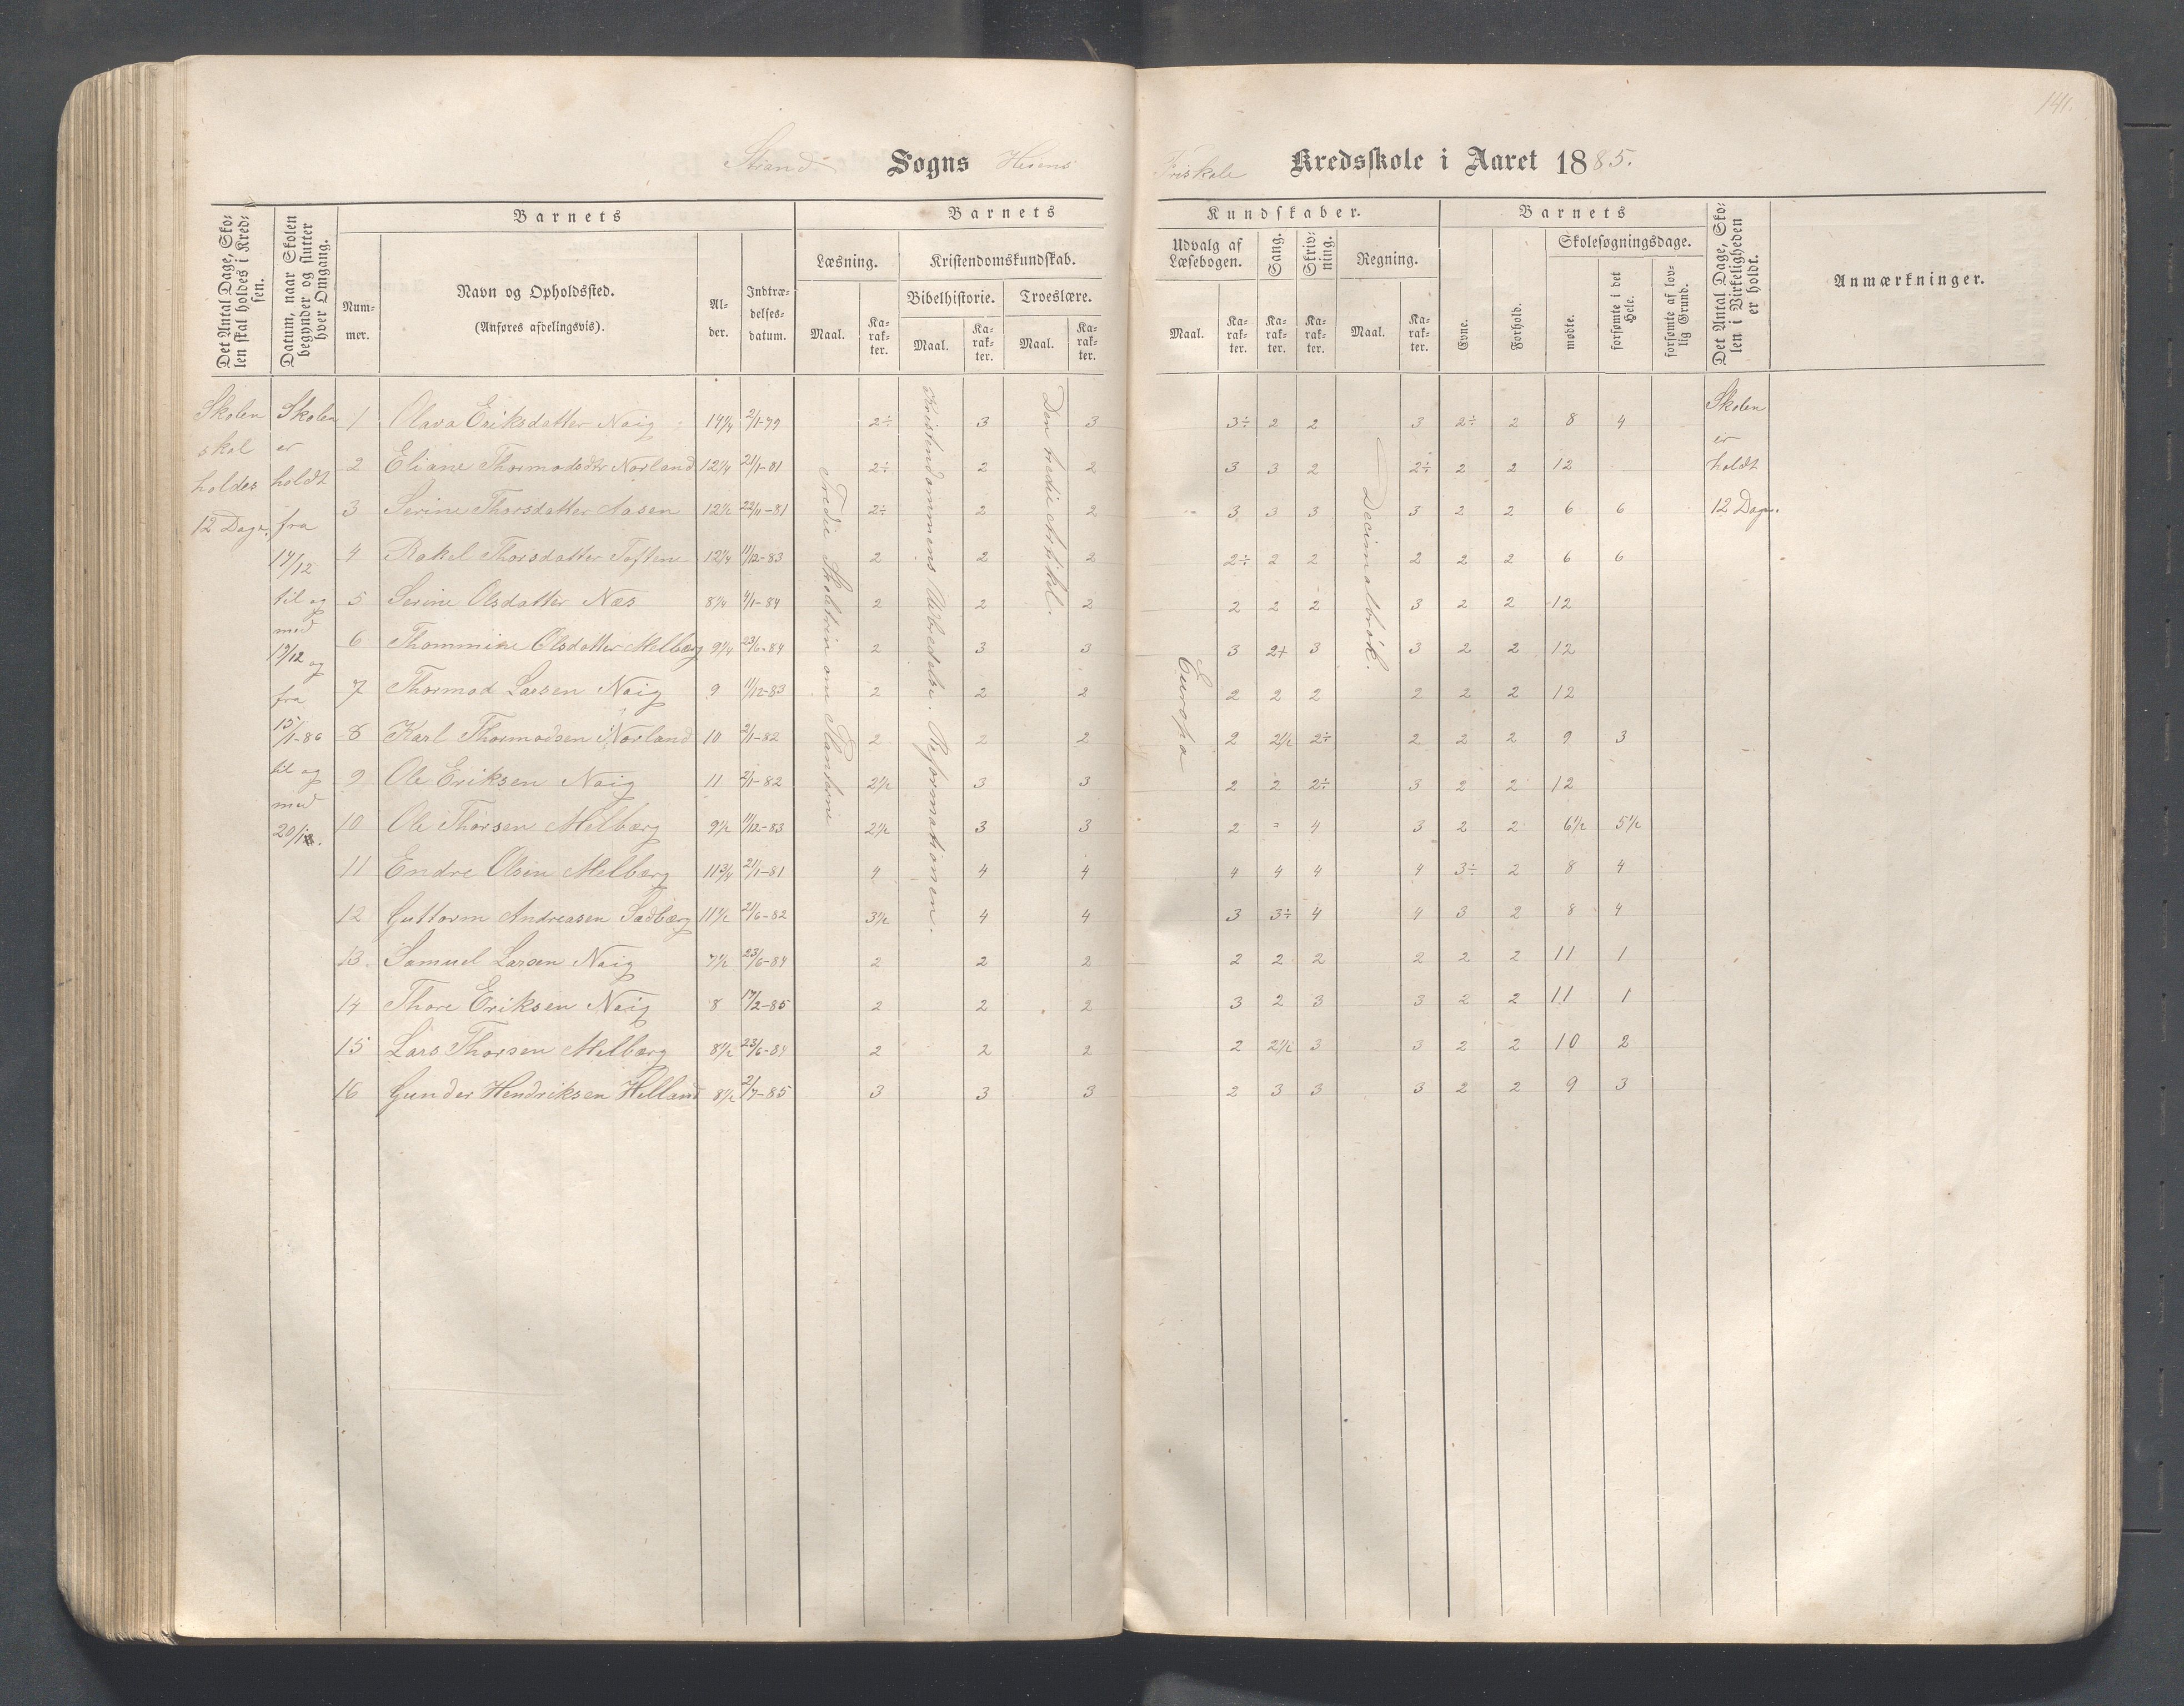 141.
Strand Sogns Friskole Kredsskole i Aaret 1885.
Det Antal Dage, Skolen skal holdes i Kredsen.
Datum, naar Skolen begynder og slutter hver Omgang.
Barnets
Nummer.
Navn og Opholdssted.
(Anføres afdelingsvis).
Alder.
Indtrædelsesdatum.
Barnets
Kundskaber.
Læsning.
Maal.
Karakter.
Kristendomskundskab.
Bibelhistorie.
Maal.
Karakter.
Troeslære.
Maal.
Karakter.
Udvalg af Læsebogen.
Maal.
Karakter.
Sang.
Karakter.
Skrivning.
Karakter.
Regning.
Maal.
Karakter.
Barnets
Evne.
Forhold.
Skolesøgningsdage.
mødte.
forsømte i det Hele.
forsømte af lovlig Grund.
Det Antal Dage, Skolen i Virkeligheden er holdt.
Anmærkninger.
Skolen
skal
holdes
12 Dage.
Skolen
er
holdt
fra
14/12
til og
med
19/12 og
fra
15/1-86
til og
med
20/1.
Tredie Skoletrin om Planterne
Kristendommens Udbredelse. Reformationen.
Den tredie Artikel.
Europa
Decimalbrøk.
Skolen
er
holdt
12 Dage.
1 Olava Eriksdatter Naig 14 1/4 2/1-79 2÷ 3 3 3÷ 2 2 3 2÷ 2 8 4
2 Eliane Thormodsdtr Norland 12 1/4 21/1-81 2÷ 2 2 3 3 2 2÷ 2 2 12
3 Serine Thorsdatter Aasen 12 1/2 22/11-81 2÷ 2 2 3 3 3 3 2 2 6 6
4 Rakel Thorsdatter Toftene 12 1/4 11/12-83 2 2 2 2÷ 2 2 2 2 2 6 6
5 Serine Olsdatter Næs 8 1/4 4/1-84 2 2 2 2 2 2 3 2 2 12
6 Thommine Olsdatter Melbærg 9 1/4 23/6-84 2 3 3 3 2+ 3 3 2 2 12
7 Thormod Larsen Naig 9 11/12-83 2 2 2 2 2 2 2 2 2 12
8 Karl Thormodsen Norland 10 2/1-82 2 2 2 2 2 1/2 2÷ 2 2 2 9 3
9 Ole Eriksen Naig 11 2/1-82 2 1/2 3 3 2 2 2÷ 3 2 2 12
10 Ole Thorsen Melbærg 9 1/2 11/12-83 2 1/2 3 3 2 = 4 3 2 2 6 1/2 5 1/2
11 Endre Olsen Melbærg 11 3/4 21/1-81 4 4 4 4 4 4 4 3÷ 2 8 4
12 Guttorm Andreasen Sadbærg 11 1/2 21/6-82 3 1/2 4 4 3 3÷ 4 4 3 2 8 4
13 Samuel Larsen Naig 7 1/2 23/6-84 2 2 2 2 2 2 2 2 2 11 1
14 Thore Eriksen Naig 8 17/2-85 2 2 2 3 2 3 3 2 2 11 1
15 Lars Thorsen Melbærg 8 1/2 23/6-84 2 2 2 2 2 1/2 3 3 2 2 10 2
16 Gunder Hendriksen Helland 8 1/2 2/7-85 3 3 3 2 3 3 3 2 2 9 3